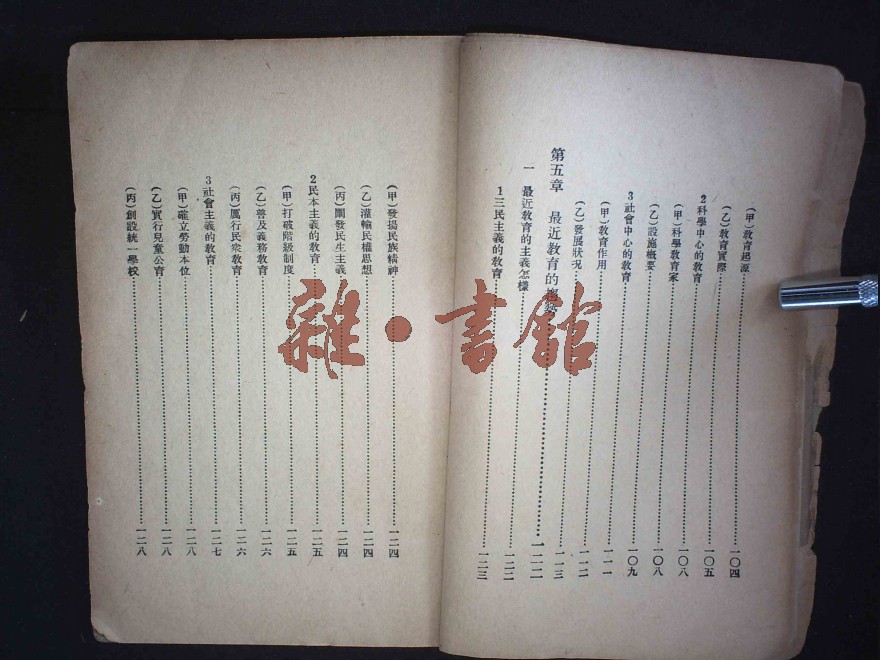 (甲)教育起源……一〇四
(乙)教育實際……一〇五
2科學中心的教育……一〇五
(甲)科學教育家……一〇八
(乙)設施概要……一〇八
3社會中心的教育……一〇九
(甲)教育作用……一一一
(乙)發展狀况……一一二
第五章 最近教育的趨勢……一一三
一 最近教育的主義怎樣……一二二
1三民主義的教育……一二三
(甲)發揚民族精神……一二四
(乙)灌輸民權思想……一二四
(丙)闡發民生主義……一二四
2民本主義的教育……一二五
(甲)打破階級制度……一二五
(乙)普及義務教育……一二六
(丙)厲行民衆教育……一二六
3社會主義的教育……一二七
(甲)確立勞動本位……一二八
(乙)實行兒童公育……一二八
(丙)創設統一學校……一二八
雜·書館